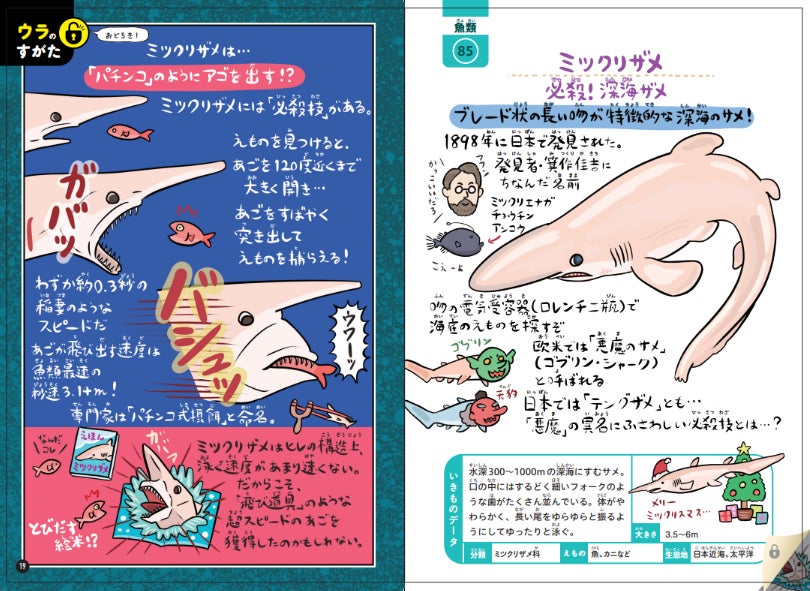 魚類
85
ミツクリザメ
必殺! 深海ザメ
ブレード状の長い吻が特徴的な深海のサメ!
1898年に日本で発見された。
発見者・箕作佳吉に
ちなんだ名前
かっこいいだろ
ミツクリエナガ
チョウチン
アンコウ
こえーよ
吻の電気受容器(ロレンチニ瓶)で
海底のえものを探すぞ
ゴブリン
欧米では「悪魔のサメ」
(ゴブリン・シャーク)
と呼ばれる
天狗
日本では「テングザメ」とも…
「悪魔」の異名にふさわしい必殺技とは…?
いきものデータ
水深300〜1000mの深海にすむサメ。
口の中にはするどく細いフォークのよう
な歯がたくさん並んでいる。体がや
わらかく、長い尾をゆらゆらと振るよ
うにしてゆったりと泳ぐ。
メリー
ミツクリスマス…
大きさ 3.5〜6m
分類 ミツクリザメ科 えもの 魚、カニなど 生息地 日本近海、太平洋
ウラの
すがた
おどろき!
ミツクリザメは…
「パチンコ」のようにアゴを出す!?
ミツクリザメには「必殺技」がある。
えものを見つけると、
あごを120度近くまで
大きく開き…
ガバッ
あごをすばやく
突き出して
えものを捕らえる!
わずか約0.3秒の
稲妻のような
スピードだ
バシュッ
ウワーッ
あごが飛び出す速度は
魚類最速の
秒速3.1m!
専門家は「パチンコ式摂餌」と命名。
なんだ
コレ
えほん
ミツクリザメ
ガバッ
とびだす
絵本!?
ミツクリザメはヒレの構造上、
泳ぐ速度があまり速くない。
だからこそ、
「飛び道具」のような
超スピードのあごを
獲得したのかもしれない。
19